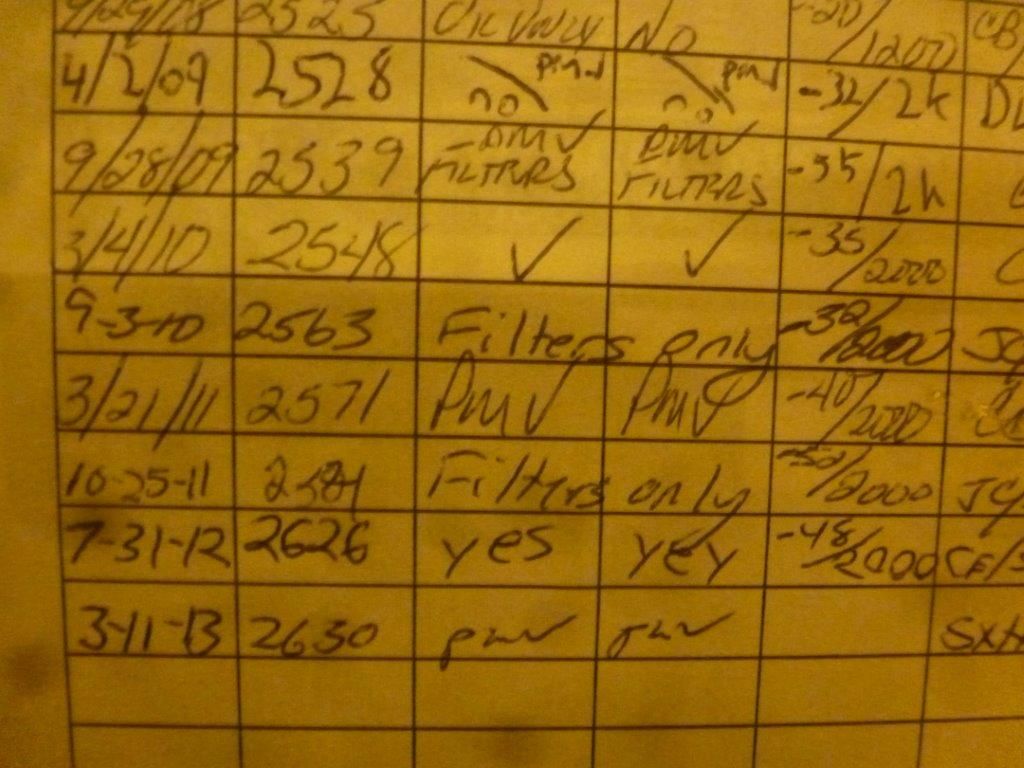 9/29/08 2525 NO -20/1200 CB/
4/2/09 2528 no pmv no pmv -32/2k
9/28/09 2539 PMV FILTERS PMV FILTERS -35/2k
3/4/10 2548 ✓ ✓ -35/2000
9-3-10 2563 Filters only -32/2000 JC
3/21/11 2571 PMV PMV -40/2000
10-25-11 Filters only -50/2000 JC/
7-31-12 2626 yes yey -48/2000 CF/S
3-11-13 2630 pmv pmv SxH